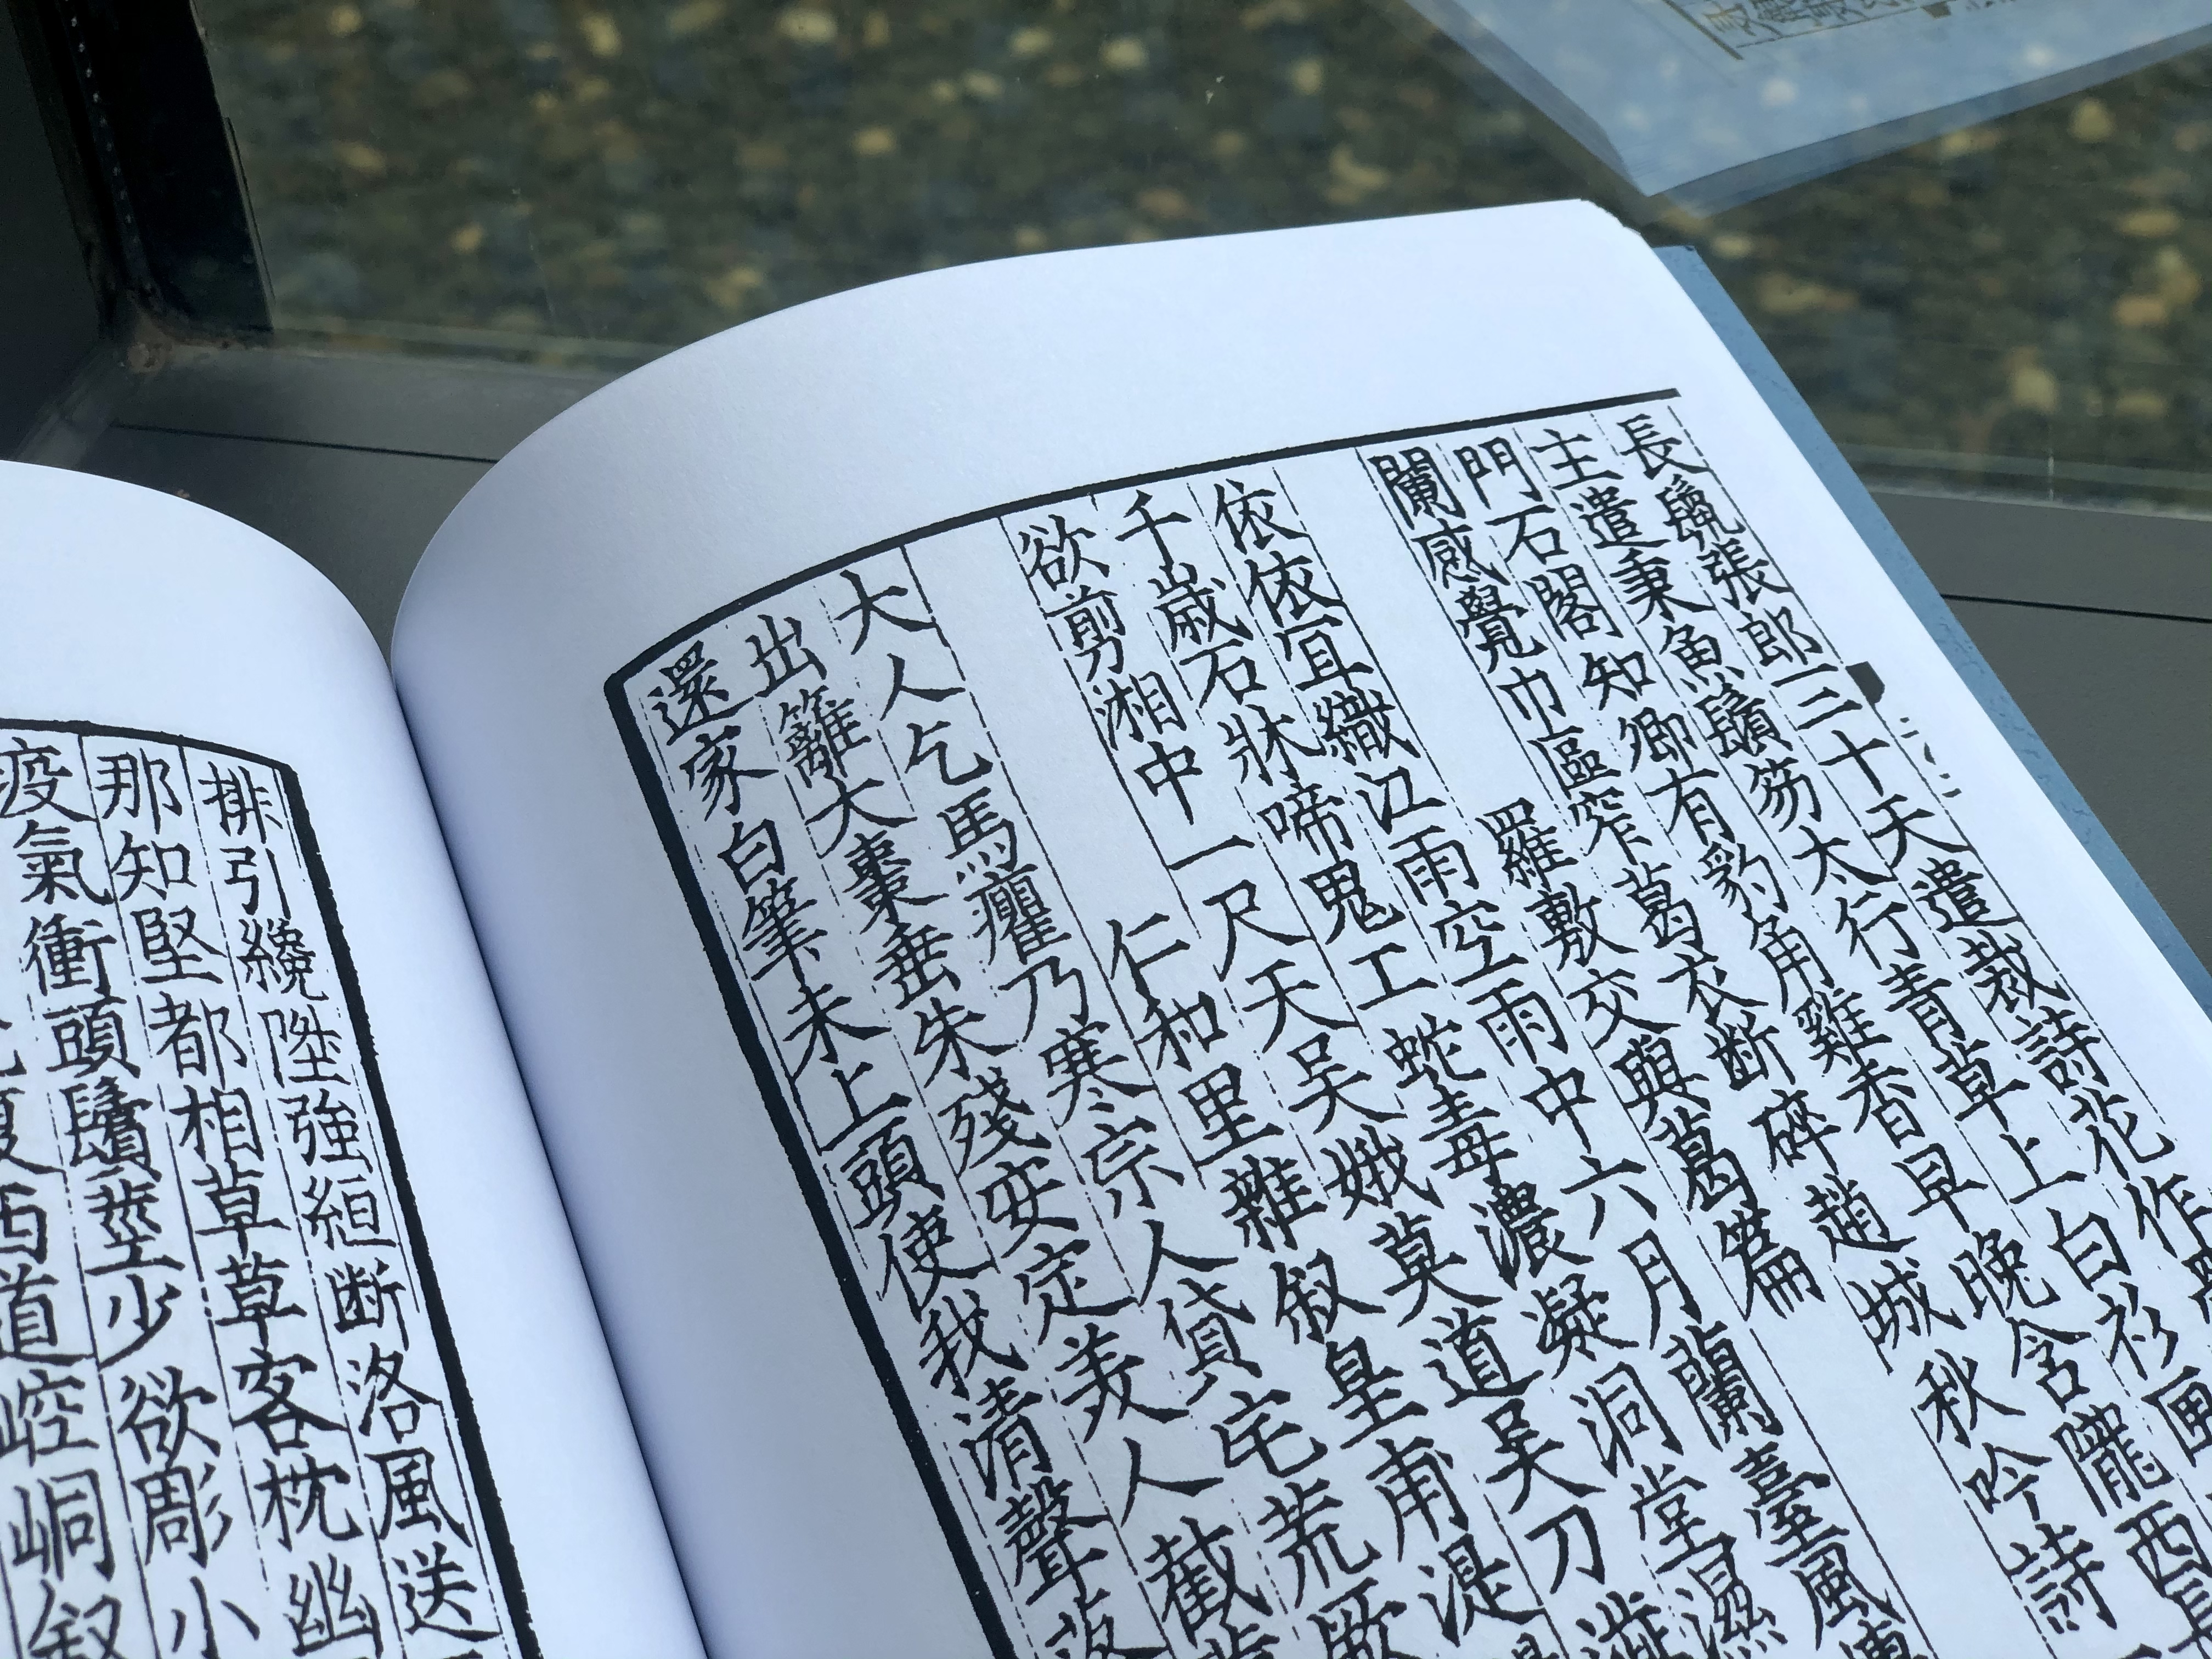 長鬣張郎三十天遣裁詩花作
主遣秉魚鬚笏太行青草上白衫匣
門石閣知卿有豹角雞香早晚含隴西長
闌感覺巾區窄葛衣断碎趙城秋吟詩一
羅敷交與葛篇
依依宜織江雨空雨中六月蘭臺風
千歲石牀啼鬼工蛇毒濃凝洞堂濕
欲剪湘中一尺天吳娥莫道吳刀澁
仁和里雜叙皇甫湜
大人乞馬癯乃寒宗人貸宅荒厥
出籬大棗垂朱殘安定美人截
還家白筆未上頭使我清聲落
排引纔陞強絙断洛風送
那知堅都相草草客枕幽
疫氣衝頭鬢莖少欲彫小
西道崆峒叙